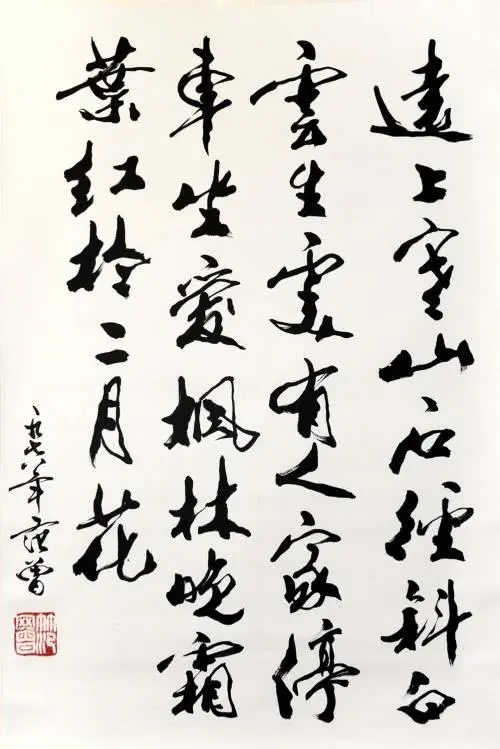 遠上寒山石經斜白
雲生處有人家停
車坐愛楓林晚霜
葉紅於二月花
一九七八年范曾